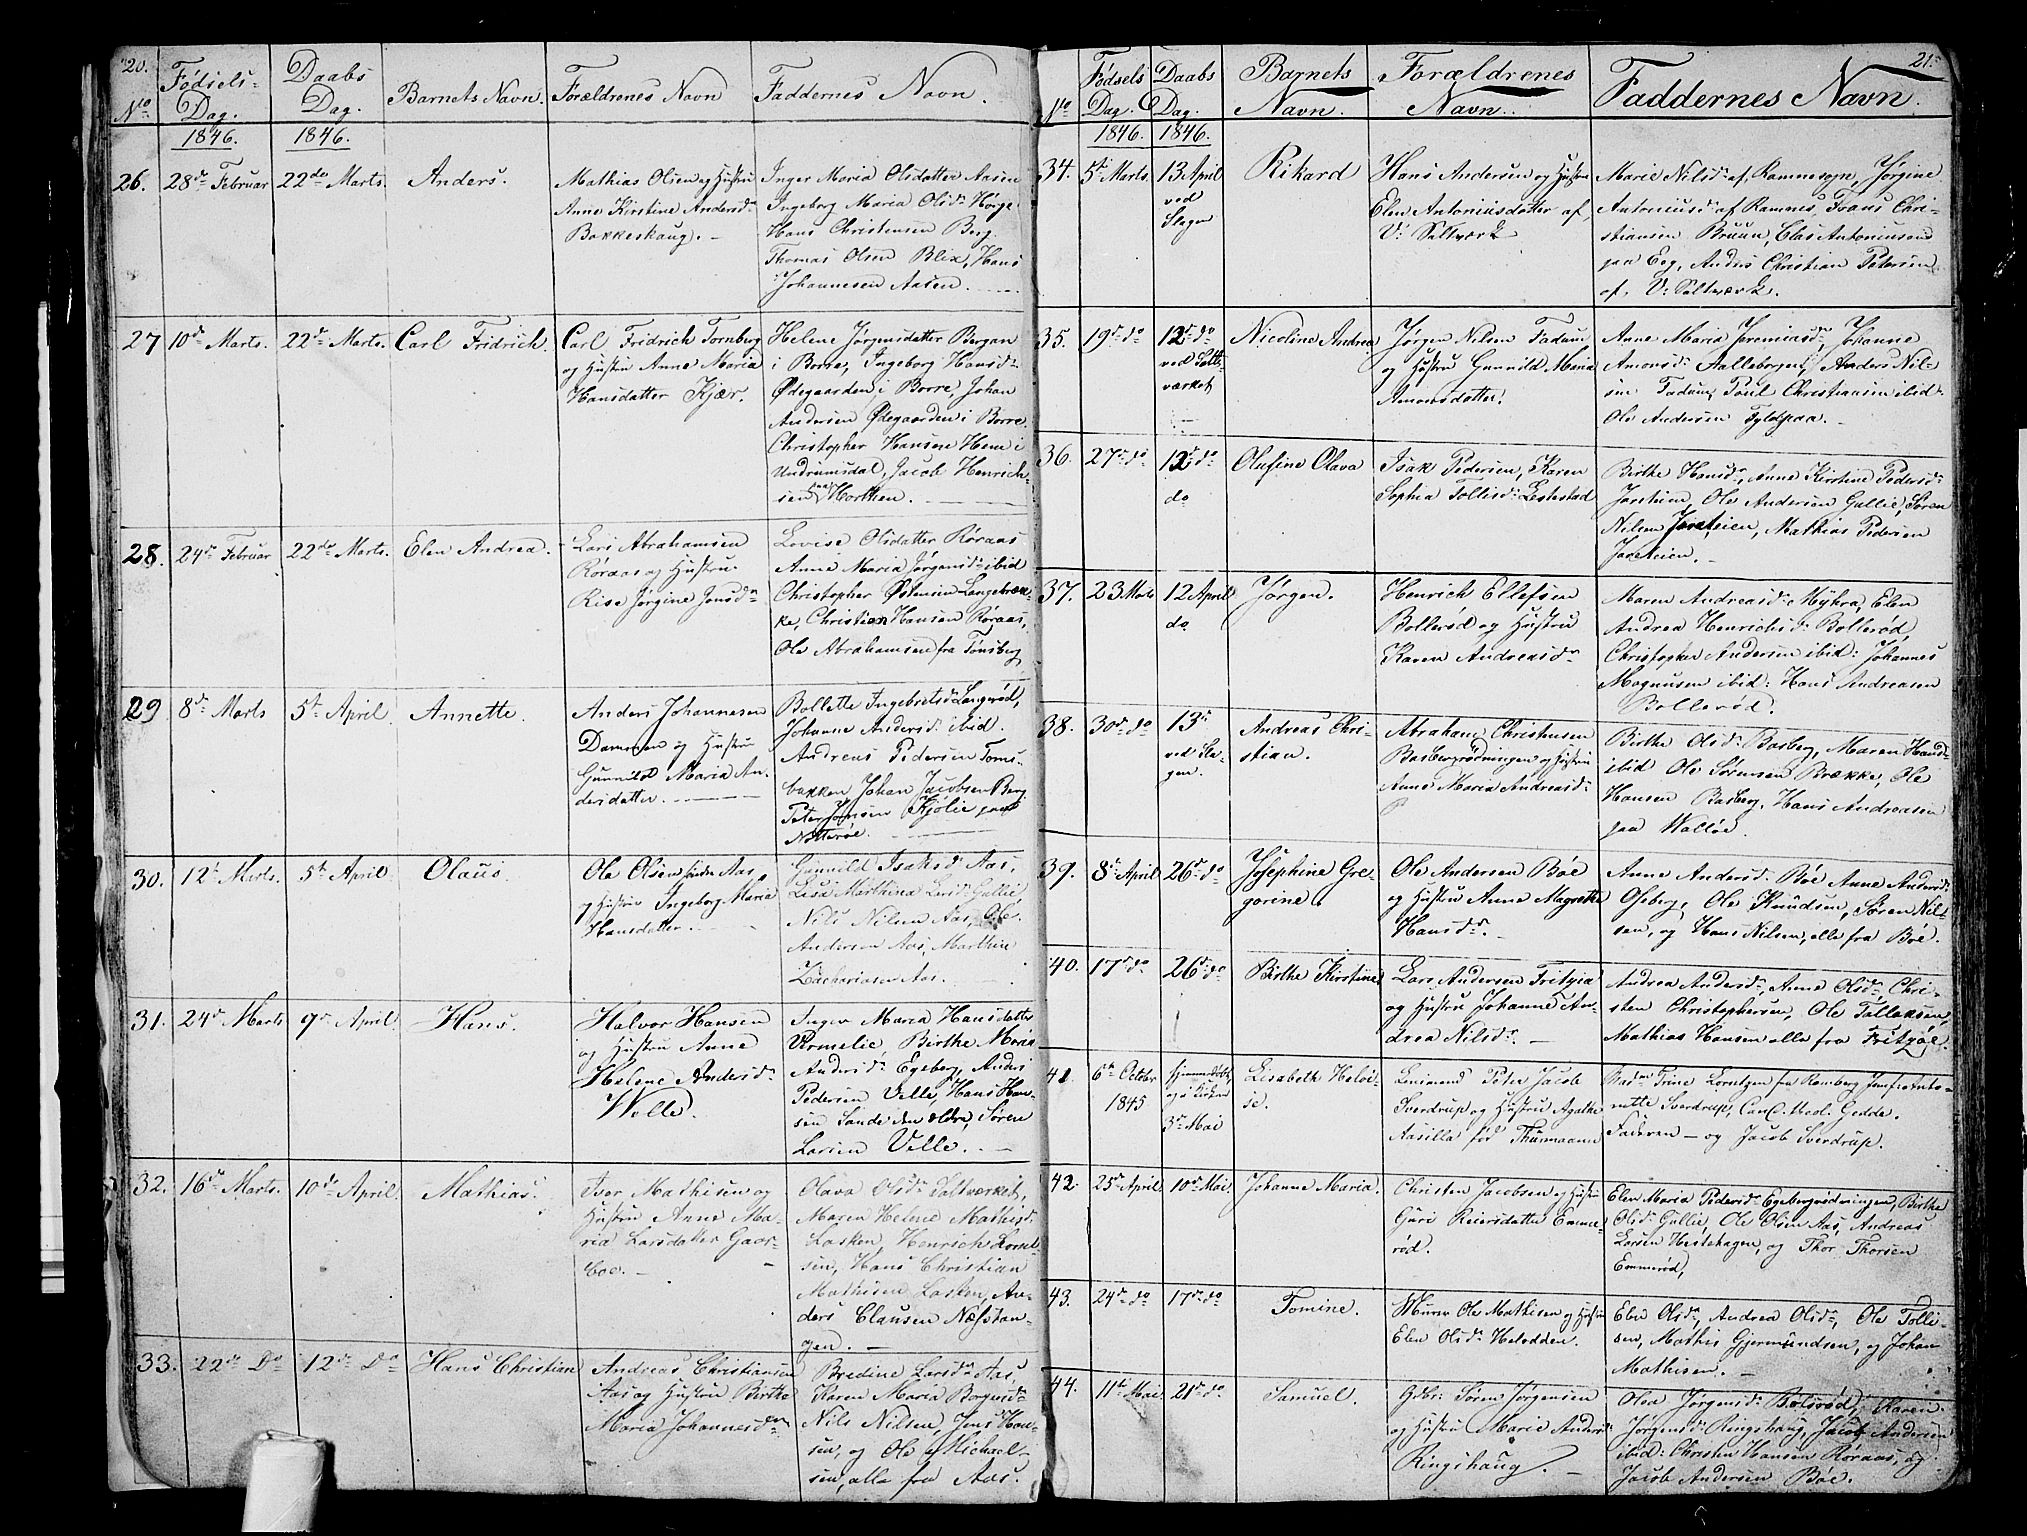 20.
No
Fødsels-
Dag.
Daabs
Dag.
Barnets Navn.
Forældrenes Navn
Faddernes Navn.
1846.
1846.
26.
28de Februar
22de Marts.
Anders.
Mathias Olsen og Hustru
Anne Kirstine Andersd:
Bakkeskaug. -
Inger Maria Olsdatter Aasen
Ingeborg Maria Olsd:
Hans Christensen Berg.
Thomas Olsen Blix, Hans
Johannesen Aasen.
27
10de Marts.
22de Marts.
Carl Fridrich.
Carl Fridrich Tornberg
og Hustru Anne Maria
Hansdatter Kjær.
Helene Jørgensdatter Bergan
i Borre, Ingeborg Hansd:
Ødegaarden i Borre, Johan
Andersen Ødegaarden i Borre.
Christopher Hansen Hem i
Undrumsdal, Jacob Henrich-
sen Horthen.
28.
24de Februar
22de Marts.
Elen Andrea.
Lars Abrahamsen
Røraas og Hustru
Rise Jørgine Jonsdr
Lovise Olsdatter Røraas
Anne Maria Jørgensd: ibid
Christopher Østensen Langebræk-
ke, Christian Hansen Røraas,
Ole Abrahamsen fra Tønsberg
29
8de Marts
5te April.
Annette.
Anders Johannesen
Dammen og Hustru
Gunnild Maria An-
dersdatter.
Bollette Ingebretsd: Langerød,
Johanne Andersd: ibid.
Andreas Pedersen Toms-
bakken Johan Jacobsen Berg
Peter Jonsen Kjølie paa
Nøtterøe.
30.
12t Marts.
5te April.
Olaus.
Ole Olsen Aas
og Hustru Ingeborg Maria
Hansdatter.
Gunnild Isaksd: Aas,
Lisa Marthina Larsd: Gallie
Nils Nilsen Aas, Ole
Andersen Aas, Mathias
Zachariasen Aas.
31.
24de Marts
9de April.
Hans.
Halvor Hansen
og Hustru Anne
Helene Andersd:
Welle.
Inger Maria Hansdatter
Virmelie, Birthe Maria
Andersd: Egeberg, Anders
Pedersen Velle, Hans Han-
sen Sande den ældre, Søren
Larsen Velle. -
32.
16de Marts.
10de April.
Mathias.
Iver Mathisen og
Hustru Anne Ma-
ria Larsdatter Gaar-
boe. -
Olava Olsdr Saltværket,
Maren Helene Mathisd:
Lasken, Henrich Lorent-
sen, Hans Christian
Mathisen Lasken, An-
ders Clausen Næsstan-
gen. -
33.
22de Do
12de Do
Hans Christian
Andreas Christiansen
Aas og Hustru Birthe
Maria Johannesd:
Bredine Larsdr Aas,
Karen Maria
Nils Nilsen, Jens Han-
sen, og Ole Michael-
sen, alle fra Aas.
21.
No
Fødsels
Dag.
Daabs
Dag.
Barnets
Navn.
Forældrenes
Navn.
Faddernes Navn.
1846.
1846.
34.
5te Marts.
13 April
ved
Slagen
Rikard
Hans Andersen og Hustru
Elen Antoniusdatter af
V: Saltværk
Marie Nilsdr af, Ramnesogn, Jørgine
Antoniusd: af Ramnes, Frans Chri-
stiansen Bruun, Clas Antoniussen
paa Eeg, Anders Christian Petersen
af, V: Saltværk.
35.
19de do
12de do
ved Salt-
værket
Nicoline Andrea
Jørgen Nilsen Fadum
og Hustru Gunnild Maria
Amonsdatter.
Anne Maria Jeremiasdr, Johanne
Amonsd: Aalleborgen, Anders Nil-
sen Fadum, Poul Christiansen ibid:
Ole Andersen Fyldpaa. -
36.
27de do
12de do
do
Olufine Olava
Isak Pedersen, Karen
Sophia Tollisd: Lestestad
Birthe Hansdr, Anne Kirstine Pedersd:
Jareteien, Ole Andersen Gallie, Søren
Nilsen Jareteien, Mathias Pedersen
Jareteien. -
37.
23 Marts
12 April
do
Jørgen.
Henrich Ellefsen
Bollerød og Hustru
Karen Andreasdr
Maren Andreasd: Myhra, Elen
Andrea Henrichsd: Bollerød,
Christopher Andersen ibid: Johannes
Magnussen ibid: Hans Andreasen
Bollerød.
38.
30de do
13de
ved Sla-
gen.
Andreas Chri-
stian.
Abraham Christensen
Basbergrødningen og Hustru
Anne Maria Andreasd:
Birthe Olsd: Basberg, Maren Hansd:
ibid Ole Sørensen Brække, Ole
Hansen Basberg, Hans Andreasen
paa Walløe.
39.
8de April
26de do
Josephine Gre-
gorine.
Ole Andersen Bøe
og Hustru Anne Magrethe
Hansdr. -
Anne Andersd: Bøe Anne Andersd:
Oseberg, Ole Knudsen, Søren Nil-
sen, og Hans Nilsen, alle fra Bøe.
40.
17de do
26de do
Birthe Kirstine
Lars Andersen Fritzøe
og Hustru Johanne An-
drea Nilsdr. -
Andrea Andersdr, Anne Olsdr Chri-
sten Christophersen, Ole Tollaksen,
Mathias Hansen alle fra Fritzøe.
41
6te Octobr
1845
hjemmedøbt
og i Kirken
3de Mai
Lisabeth Helvi-
se.
Leutnand Peter Jacob
Sverdrup og Hustru Agathe
Aasilla fød Thurmann
Madm Trine Lorentzen fra Ramberg Jomfr Anto-
nette Sverdrup, Can C. Med. Gedde.
Faderen - og Jacob Sverdrup.
42
25de April
10de Mai.
Johanne Maria.
Christen Jacobsen og Hustru
Guri Reiersdatter Emme-
rød.
Elen Maria Pedersdr Egebergrødningen, Birthe
Olsd: Gallie, Ole Olsen Aas, Andreas
Larsen Hestehagen, og Thor Thorsen
Emmerød,
43.
24de do
17de do
Tomine.
Murer Ole Mathisen og Hustru
Elen Olsdr Helvedden.
Elen Olsdr, Andrea Olsdr, Ole Tolli-
sen, Mathis Gjermundsen, og Johan
Mathisen. -
44.
11te Mai
21de do
Samuel.
Gdbr: Søren Jørgensen
og Hustru Marie Andersd:
Ringshaug. -
Olea Jørgensd: Bolsrød, Karen
Jørgensd: Ringshaug, Jacob Andersen
ibid: Christen Hansen Røraas, og
Jacob Andersen Bøe.